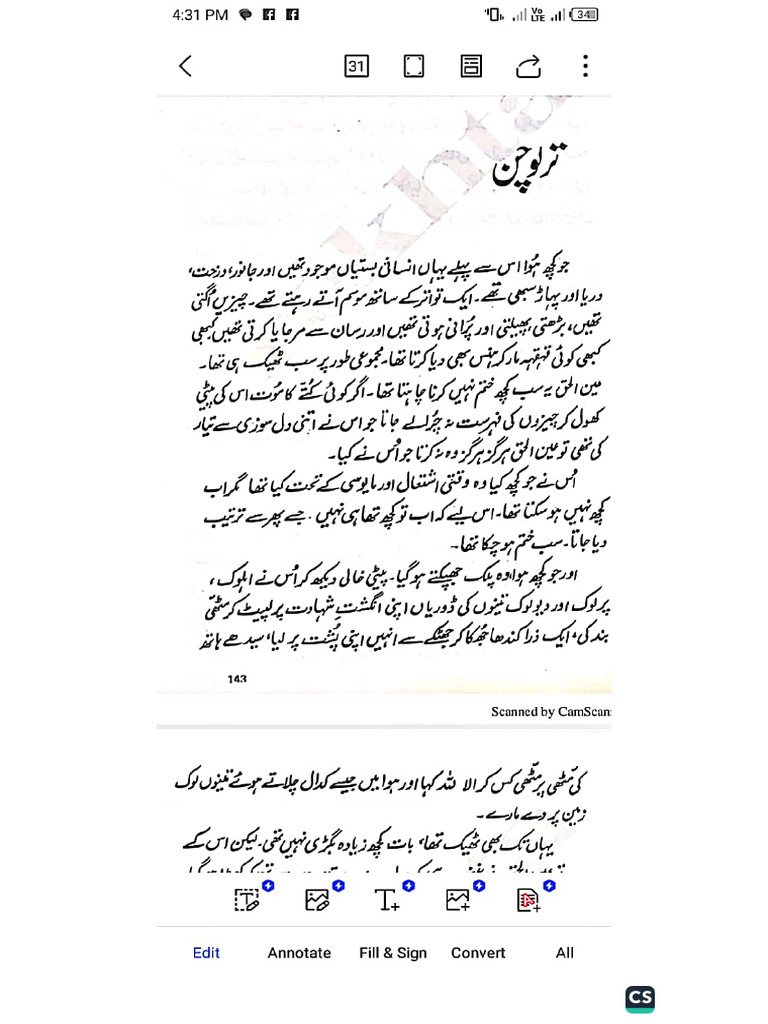 4:31 PM
Vo LTE 34
31
khta
ترلوچن
جو کچھ ہُوا اس سے پہلے یہاں انسانی بستیاں موجود تھیں اور جانور، درخت،
دریا اور پہاڑ سبھی تھے۔ ایک تواتر کے ساتھ موسم آتے رہتے تھے۔ چیزیں اُگتی
تھیں، بڑھتی پھیلتی اور پُرانی ہوتی تھیں اور رسان سے مرجایا کرتی تھیں کبھی
کبھی کوئی قہقہہ مار کر ہنس بھی دیا کرتا تھا۔ مجموعی طور پر سب ٹھیک ہی تھا۔
عین الحق یہ سب کچھ ختم نہیں کرنا چاہتا تھا۔ اگر کوئی کُتّے کا مُوت اس کی پیٹی
کھول کر چیزوں کی فہرست نہ چُرالے جاتا جو اس نے اتنی دل سوزی سے تیار
کی تھی تو عین الحق ہرگز ہرگز وہ نہ کرتا جو اُس نے کیا۔
اُس نے جو کچھ کیا وہ وقتی اشتعال اور مایوسی کے تحت کیا تھا مگر اب
کچھ نہیں ہو سکتا تھا۔ اس لیے کہ اب تو کچھ تھا ہی نہیں۔ جسے پھر سے ترتیب
دیا جاتا۔ سب ختم ہو چکا تھا۔
اور جو کچھ ہوا وہ پلک جھپکتے ہو گیا۔ پیٹی خالی دیکھ کر اُس نے اہلوک،
پرلوک اور دیولوک تینوں کی ڈوریاں اپنی انگشتِ شہادت پر لپیٹ کر مٹھی
بند کی، ایک ذرا کندھا جُھکا کر جھٹکے سے انہیں اپنی پُشت پر لیا، سیدھے ہاتھ
143
Scanned by CamScan
کی مٹھی پر مٹھی کس کر الا للہ کہا اور ہوا میں جیسے کدال چلاتے ہوئے تینوں لوک
زمین پر دے مارے۔
یہاں تک بھی ٹھیک تھا، بات کچھ زیادہ بگڑی نہیں تھی۔ لیکن اس کے
Edit Annotate Fill & Sign Convert All
CS